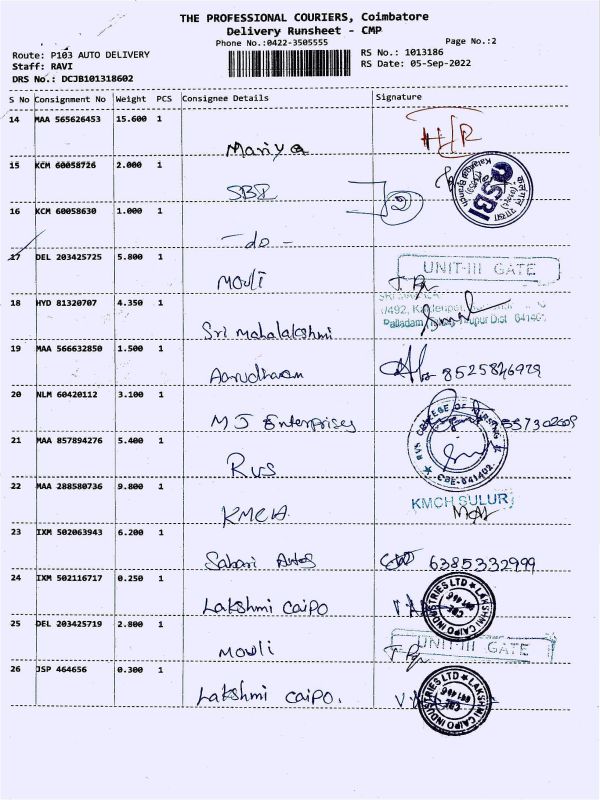 THE PROFESSIONAL COURIERS, Coimbatore
Delivery Runsheet - CMP
Phone No.:0422-3505555
Page No.:2
Route: P103 AUTO DELIVERY
RS No.: 1013186
Staff: RAVI
RS Date: 05-Sep-2022
DRS No.: DCJB101318602
S No Consignment No Weight PCS Consignee Details Signature
14 MAA 565626453 15.600 1
Mariya
15 KCM 60058726 2.000 1
SBI
16 KCM 60058630 1.000 1
- do -
17 DEL 203425725 5.800 1
UNIT-III GATE
Mouli
18 HYD 81320707 4.350 1
Palladam
Sri Mahalakshmi
19 MAA 566632850 1.500 1
Aarudhram 8525846979
20 NLM 60420112 3.100 1
MJ Enterprises
21 MAA 857894276 5.400 1
RVS COLLEGE OF NURSING
CBE-641402
RVS
22 MAA 288580736 9.800 1
KMCH SULUR
KMCH
23 IXM 502063943 6.200 1
Sabari Autos 6385332999
24 IXM 502116717 0.250 1
LAKSHMI CAIPO INDUSTRIES LTD
Lakshmi Caipo
25 DEL 203425719 2.800 1
UNIT-III GATE
Mouli
26 JSP 464656 0.300 1
LAKSHMI CAIPO INDUSTRIES LTD
Lakshmi Caipo.